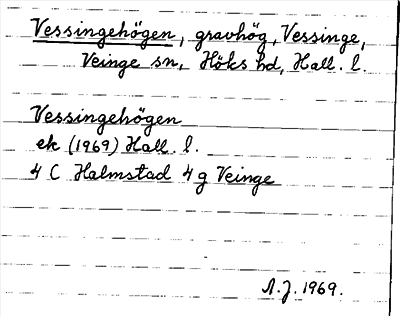 Vessingehögen, gravhög, Vessinge,
Veinge sn, Höks hd, Hall. l.
Vessingehögen
ek (1969) Hall. l.
4 C Halmstad 4 g Veinge
A.J. 1969.